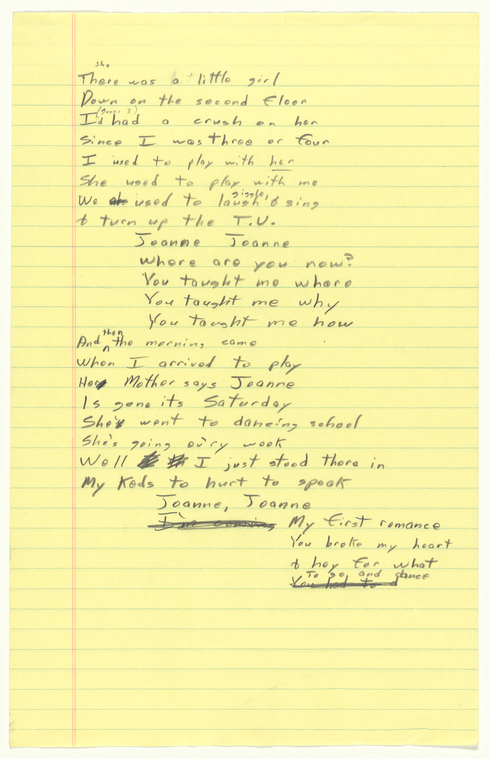 she
There was a little girl
Down on the second floor
(guess I)
I'd had a crush on her
Since I was three or four
I used to play with her
She used to play with me
giggle,
We used to laugh & sing
& turn up the T.V.
Joanne Joanne
Where are you now?
You taught me where
You taught me why
You taught me how
then
And the morning came
When I arrived to play
Her Mother says Joanne
Is gone its Saturday
She's went to dancing school
She's going ev'ry week
Well I just stood there in
My Keds to hurt to speak
Joanne, Joanne
I'm coming My first romance
You broke my heart
& hey for what
To go and dance
You had to d